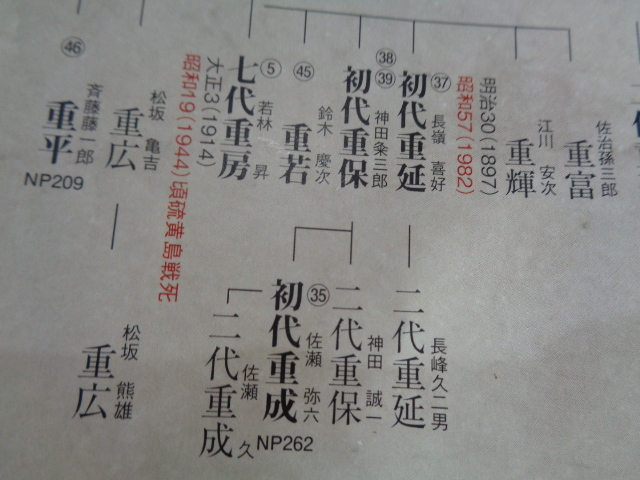 佐治孫三郎
重富
江川 安次
重輝
明治30(1897)
昭和57(1982)
㊲ 長嶺 喜好
初代重延
㊳
㊴ 神田粂三郎
初代重保
㊺ 鈴木 慶次
重若
⑤ 若林 昇
七代重房
大正3(1914)
昭和19(1944)頃硫黄島戦死
松坂 亀吉
重広
㊻ 斉藤藤一郎
重平
NP209
長峰久二男
二代重延
神田 誠一
二代重保
㉟ 佐瀬 弥六
初代重成
NP262
佐瀬 久
二代重成
松坂 熊雄
重広